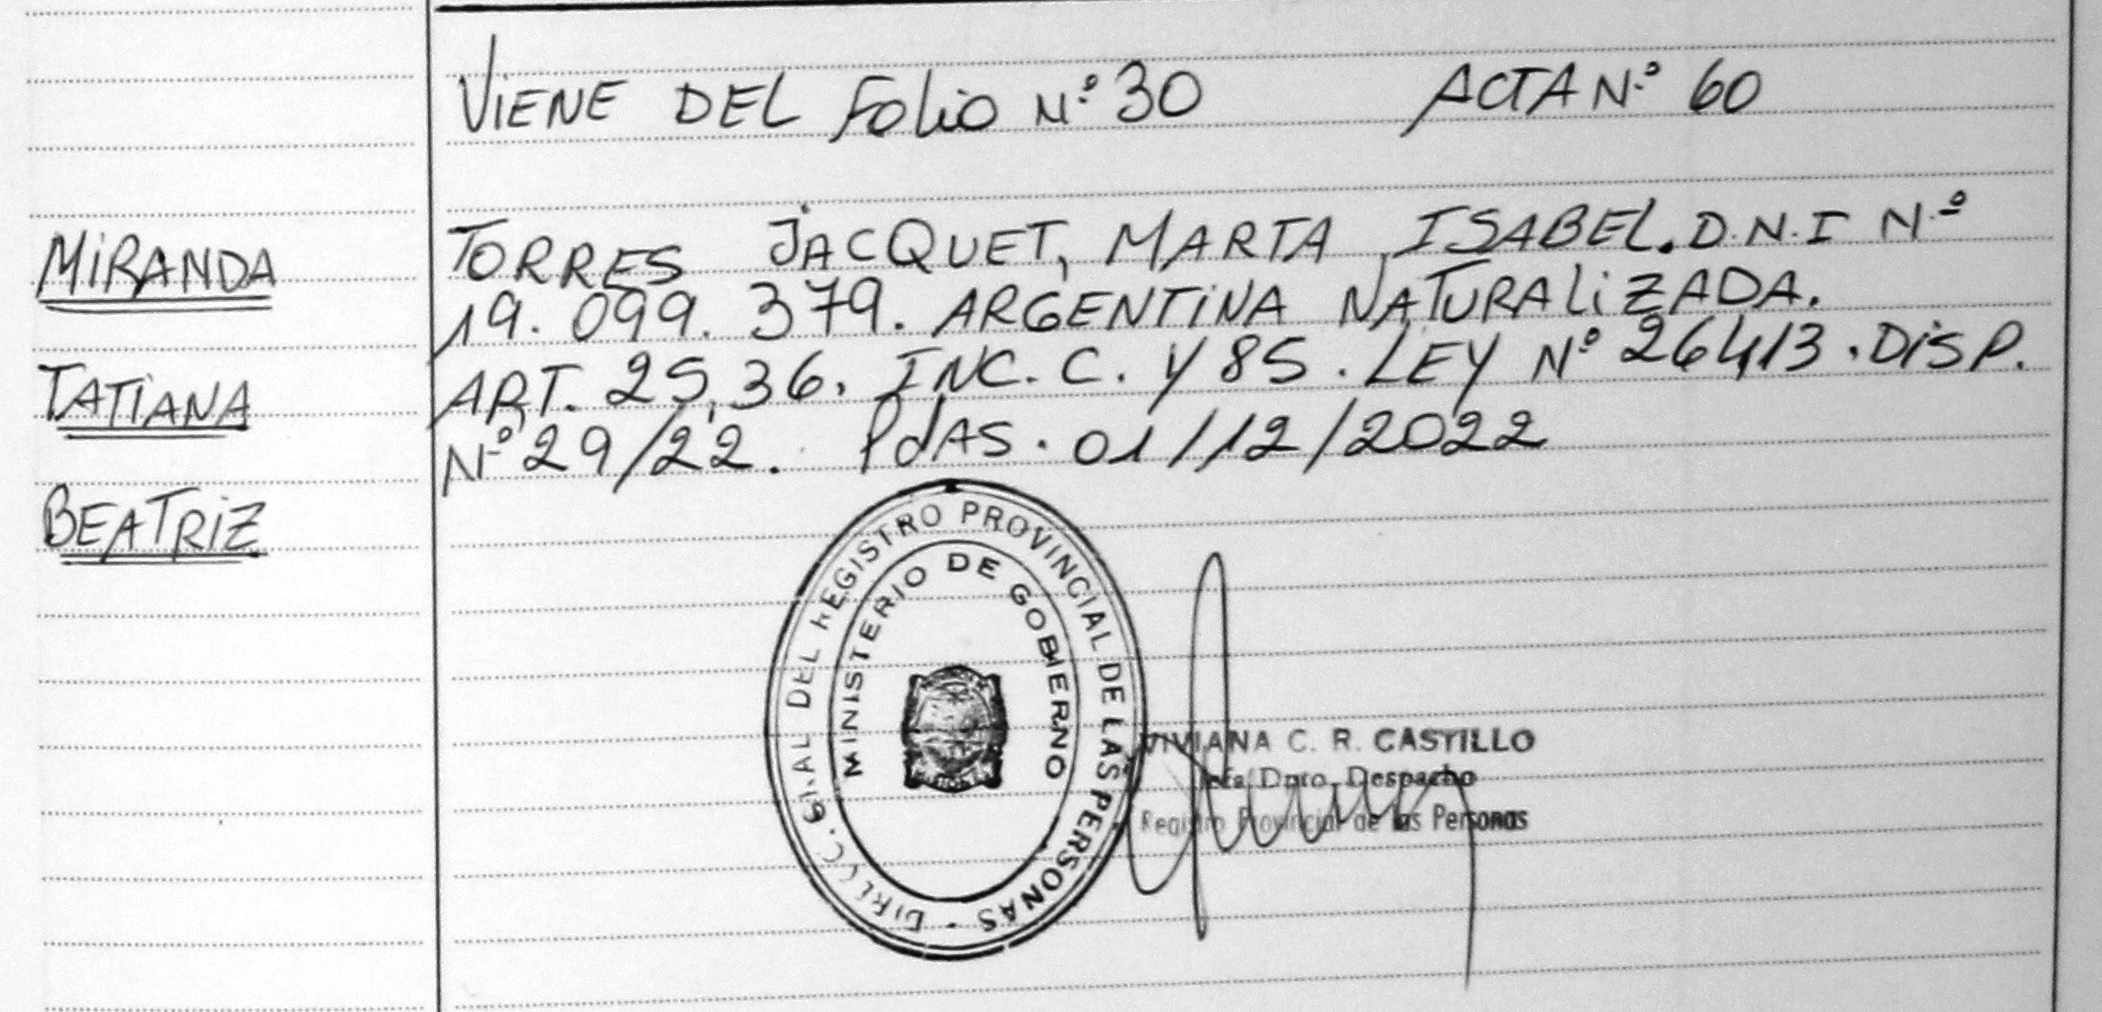 VIENE DEL FOLIO Nº 30 ACTA Nº 60
MIRANDA
TATIANA
BEATRIZ
TORRES JACQUET, MARTA ISABEL. D.N.I Nº
19.099.379. ARGENTINA NATURALIZADA.
ART. 25,36. INC. C. Y 85. LEY Nº 26413. DISP.
Nº 29/22. PdAS. 01/12/2022
DIRECC. GRAL DEL REGISTRO PROVINCIAL DE LAS PERSONAS -
MINISTERIO DE GOBIERNO
VIVIANA C. R. CASTILLO
Jefa Dpto. Despacho
Registro Provincial de las Personas